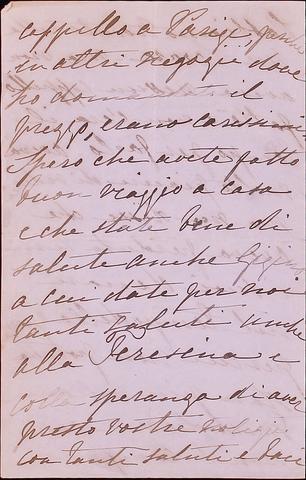 cappello a Parigi, perchè
in altri negozii dove
ho domandato il
prezzo, erano carissimi
Spero che avete fatto
buon viaggio a casa
e che state bene di
salute anche Gigi
a cui date per noi
tanti saluti anche
alla Teresina e
colla speranza di aver
presto vostre notizie
con tanti saluti e baci